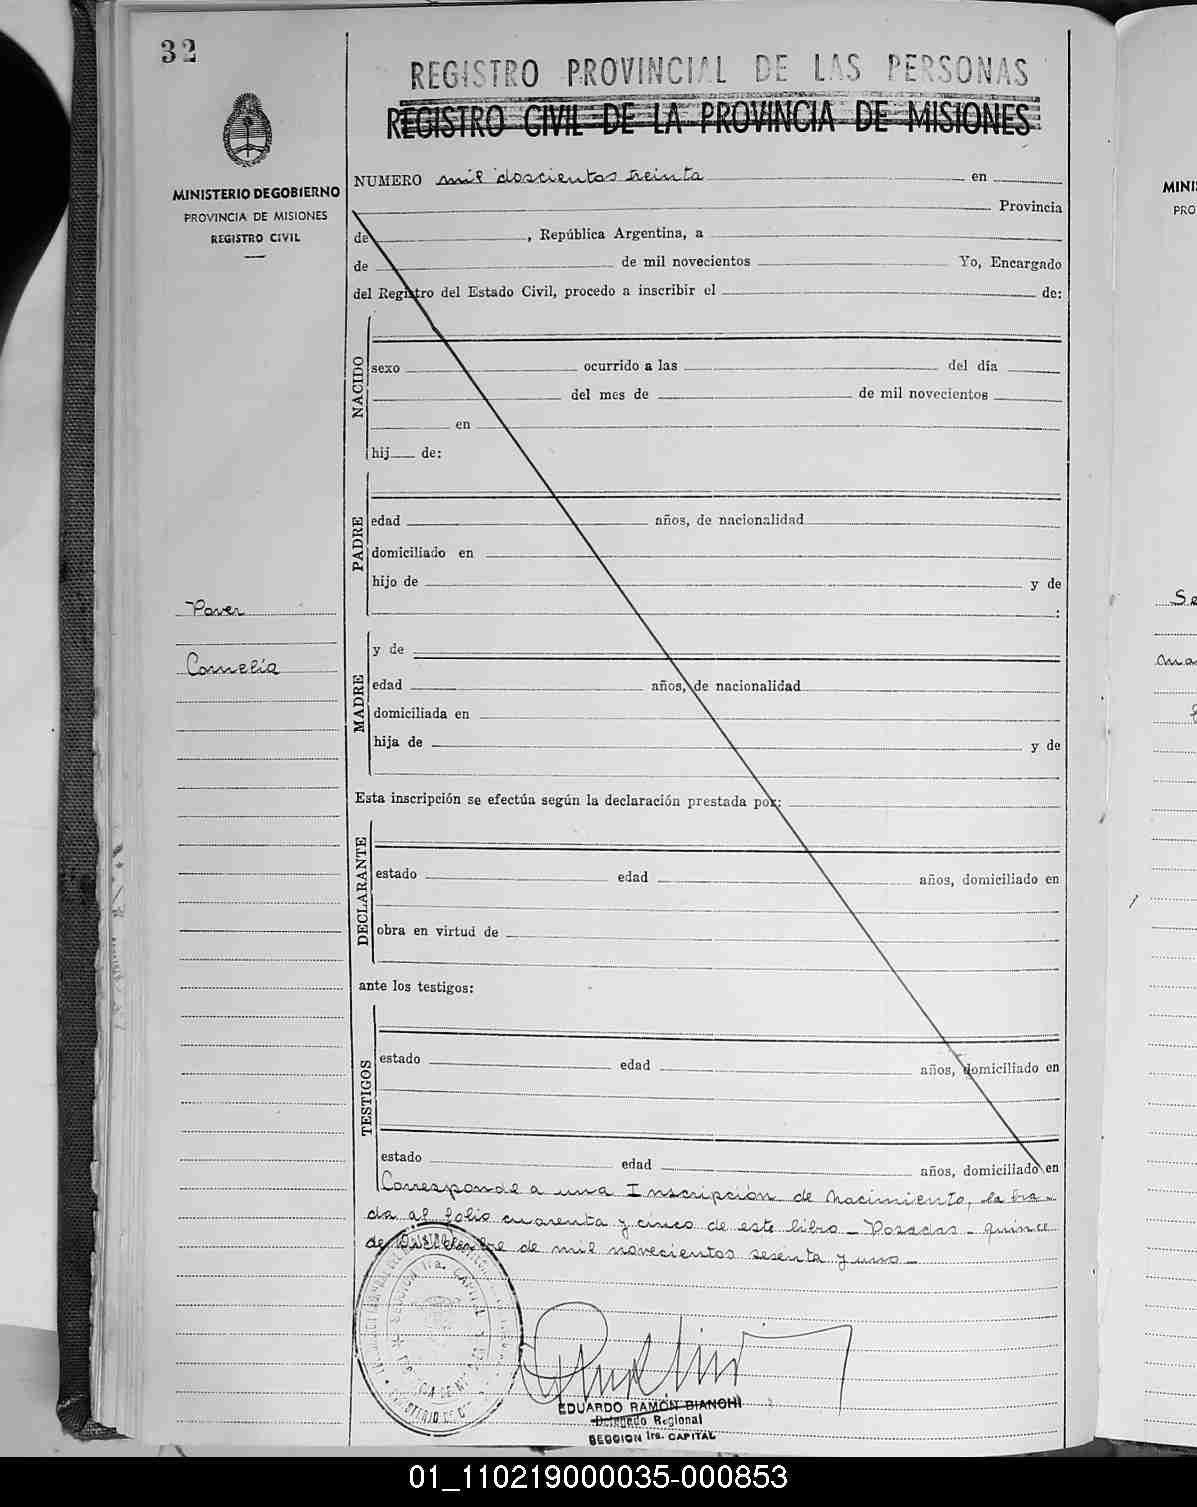 32
REGISTRO PROVINCIAL DE LAS PERSONAS
REGISTRO CIVIL DE LA PROVINCIA DE MISIONES
MINISTERIO DE GOBIERNO
PROVINCIA DE MISIONES
REGISTRO CIVIL
NUMERO mil doscientos treinta en
Provincia
de , República Argentina, a
de de mil novecientos Yo, Encargado
del Registro del Estado Civil, procedo a inscribir el de:
NACIDO
sexo ocurrido a las del día
del mes de de mil novecientos
en
hij de:
PADRE
edad años, de nacionalidad
domiciliado en
hijo de y de
:
Cornelia
MADRE
y de
edad años, de nacionalidad
domiciliada en
hija de y de
Esta inscripción se efectúa según la declaración prestada por:
DECLARANTE
estado edad años, domiciliado en
obra en virtud de
ante los testigos:
TESTIGOS
estado edad años, domiciliado en
estado edad años, domiciliado en
Corresponde a una Inscripción de Nacimiento, labra-
da al folio cuarenta y cinco de este libro - Posadas - quince
de Diciembre de mil novecientos sesenta y uno -
EDUARDO RAMÓN BIANCHI
Delegado Regional
SECCION 1ra. CAPITAL
MINI
PRO
01_110219000035-000853